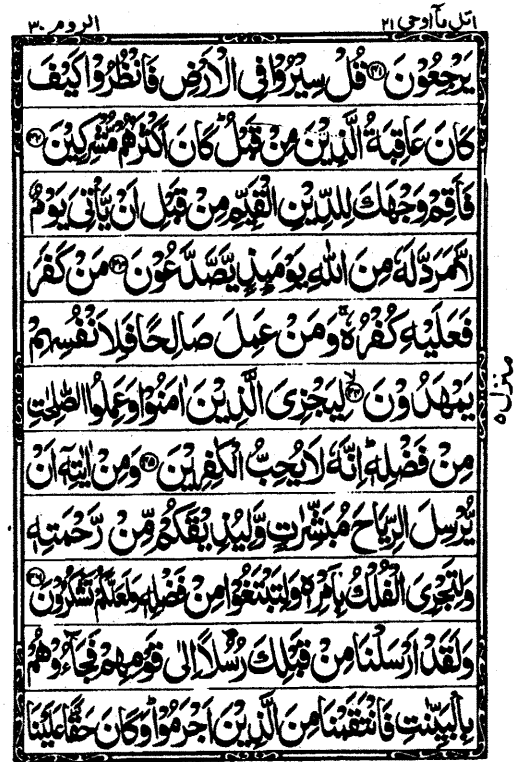 اتل ماۤ اوحی ۲۱
الروم ۳۰
یَرْجِعُوْنَ ﴿۴۱﴾ قُلْ سِیْرُوْا فِی الْاَرْضِ فَانْظُرُوْا كَیْفَ
كَانَ عَاقِبَةُ الَّذِیْنَ مِنْ قَبْلُ ؕ كَانَ اَكْثَرُهُمْ مُّشْرِكِیْنَ ﴿۴۲﴾
فَاَقِمْ وَجْهَكَ لِلدِّیْنِ الْقَیِّمِ مِنْ قَبْلِ اَنْ یَّاْتِیَ یَوْمٌ
لَّا مَرَدَّ لَهٗ مِنَ اللّٰهِ یَوْمَىِٕذٍ یَّصَّدَّعُوْنَ ﴿۴۳﴾ مَنْ كَفَرَ
فَعَلَیْهِ كُفْرُهٗ ۚ وَ مَنْ عَمِلَ صَالِحًا فَلِاَنْفُسِهِمْ
یَمْهَدُوْنَ ﴿۴۴﴾ۙ لِیَجْزِیَ الَّذِیْنَ اٰمَنُوْا وَ عَمِلُوا الصّٰلِحٰتِ
مِنْ فَضْلِهٖ ؕ اِنَّهٗ لَا یُحِبُّ الْكٰفِرِیْنَ ﴿۴۵﴾ وَ مِنْ اٰیٰتِهٖۤ اَنْ
یُّرْسِلَ الرِّیَاحَ مُبَشِّرٰتٍ وَّ لِیُذِیْقَكُمْ مِّنْ رَّحْمَتِهٖ
وَ لِتَجْرِیَ الْفُلْكُ بِاَمْرِهٖ وَ لِتَبْتَغُوْا مِنْ فَضْلِهٖ وَ لَعَلَّكُمْ تَشْكُرُوْنَ ﴿۴۶﴾
وَ لَقَدْ اَرْسَلْنَا مِنْ قَبْلِكَ رُسُلًا اِلٰى قَوْمِهِمْ فَجَآءُوْهُمْ
بِالْبَیِّنٰتِ فَانْتَقَمْنَا مِنَ الَّذِیْنَ اَجْرَمُوْا ؕ وَ كَانَ حَقًّا عَلَیْنَا
منزل ۵